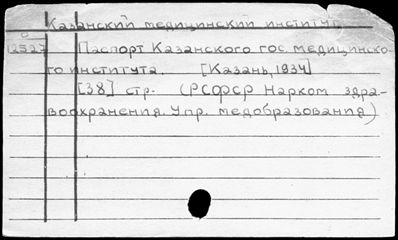 Казанский медицинский институт.
12527 Паспорт Казанского гос. медицинско-
го института. [Казань, 1934]
[38] стр. (РСФСР Нарком здра-
воохранения. Упр. медобразования)